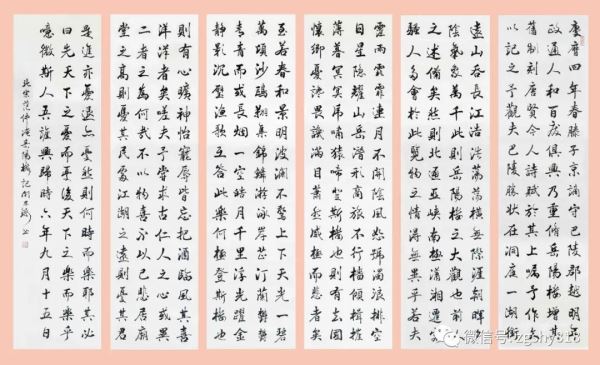 慶曆四年春滕子京謫守巴陵郡越明年
政通人和百廢俱興乃重修岳陽樓增其
舊制刻唐賢今人詩賦於其上囑予作文
以記之予觀夫巴陵勝狀在洞庭一湖銜
遠山吞長江浩浩蕩蕩橫無際涯朝暉夕
陰氣象萬千此則岳陽樓之大觀也前人
之述備矣然則北通巫峽南極瀟湘遷客
騷人多會於此覽物之情得無異乎若夫
霪雨霏霏連月不開陰風怒號濁浪排空
日星隱耀山岳潛形商旅不行檣傾楫摧
薄暮冥冥虎嘯猿啼登斯樓也則有去國
懷鄉憂讒畏譏滿目蕭然感極而悲者矣
至若春和景明波瀾不驚上下天光一碧
萬頃沙鷗翔集錦鱗游泳岸芷汀蘭鬱鬱
青青而或長煙一空皓月千里浮光躍金
静影沉璧漁歌互答此樂何極登斯樓也
則有心曠神怡寵辱皆忘把酒臨風其喜
洋洋者矣嗟夫予嘗求古仁人之心或異
二者之為何哉不以物喜不以己悲居廟
堂之高則憂其民處江湖之遠則憂其君
是進亦憂退亦憂然則何時而樂耶其必
曰先天下之憂而憂後天下之樂而樂乎
噫微斯人吾誰與歸時六年九月十五日
范仲淹岳陽樓記
微信号: zgshy818